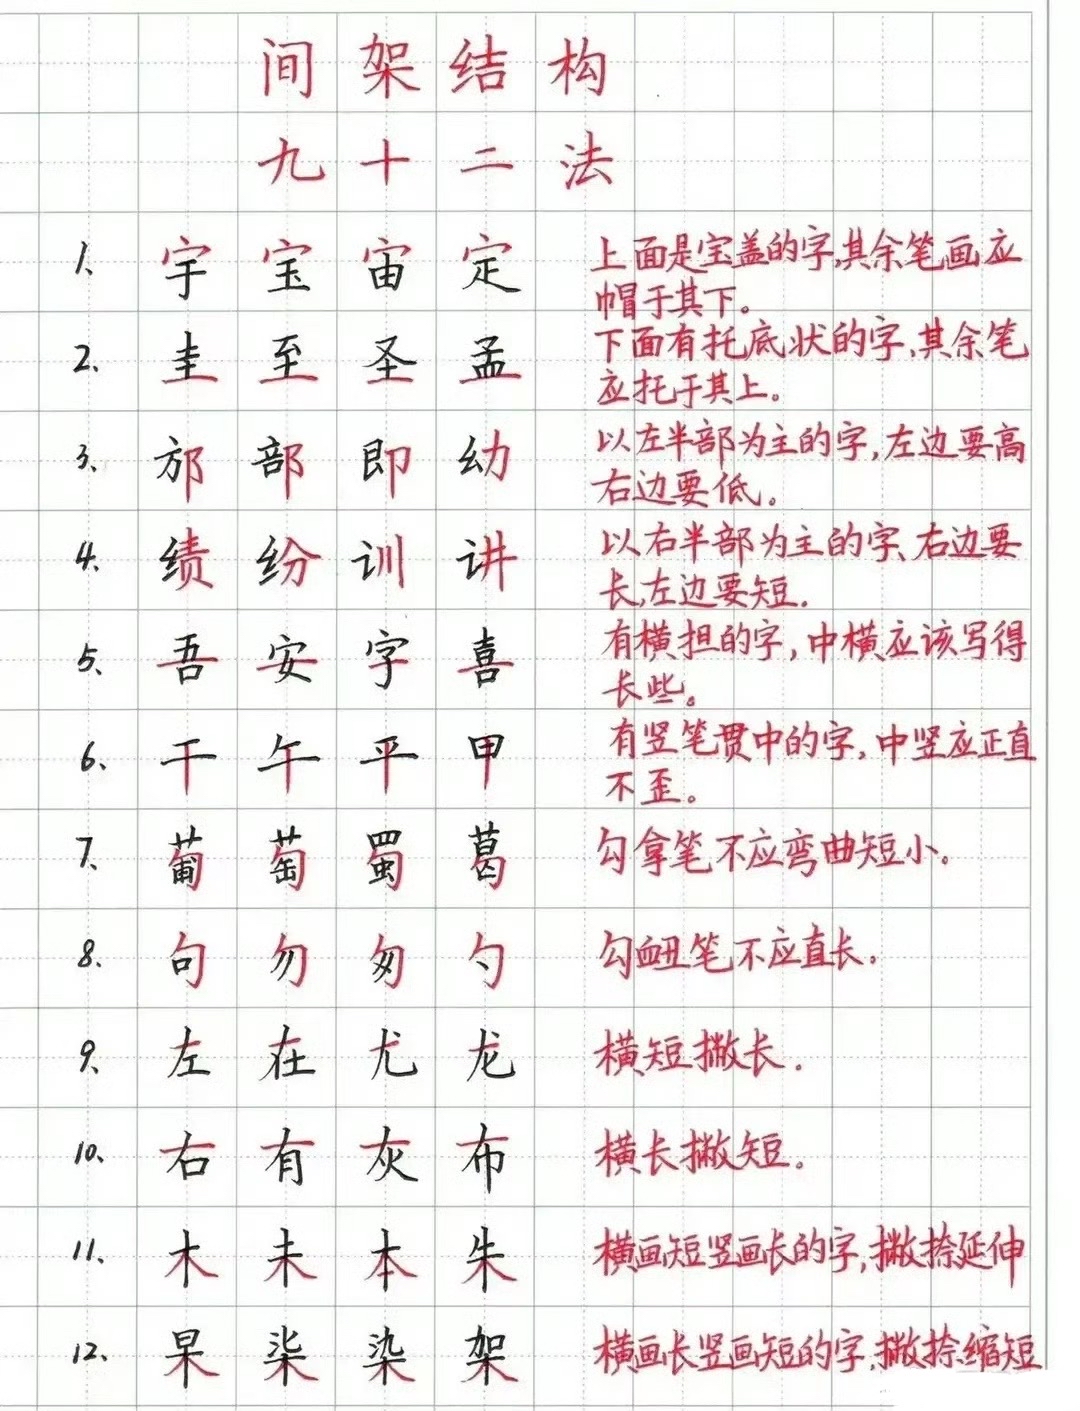 间架结构
九十二法
1、宇 宝 宙 定 上面是宝盖的字,其余笔画应
帽于其下。
2、圭 至 圣 孟 下面有托底状的字、其余笔
应托于其上。
3、邡 部 即 幼 以左半部为主的字,左边要高
右边要低。
4、绩 纷 训 讲 以右半部为主的字、右边要
长,左边要短.
5、吾 安 字 喜 有横担的字,中横应该写得
长些。
6、干 午 平 甲 有竖笔贯中的字,中竖应正直
不歪。
7、葡 萄 蜀 葛 勾拿笔不应弯曲短小.
8、句 勿 匆 勺 勾衄笔不应直长.
9、左 在 尤 龙 横短撇长.
10、右 有 灰 布 横长撇短.
11、木 未 本 朱 横画短竖画长的字,撇捺延伸
12、杲 柒 染 架 横画长竖画短的字,撇捺缩短